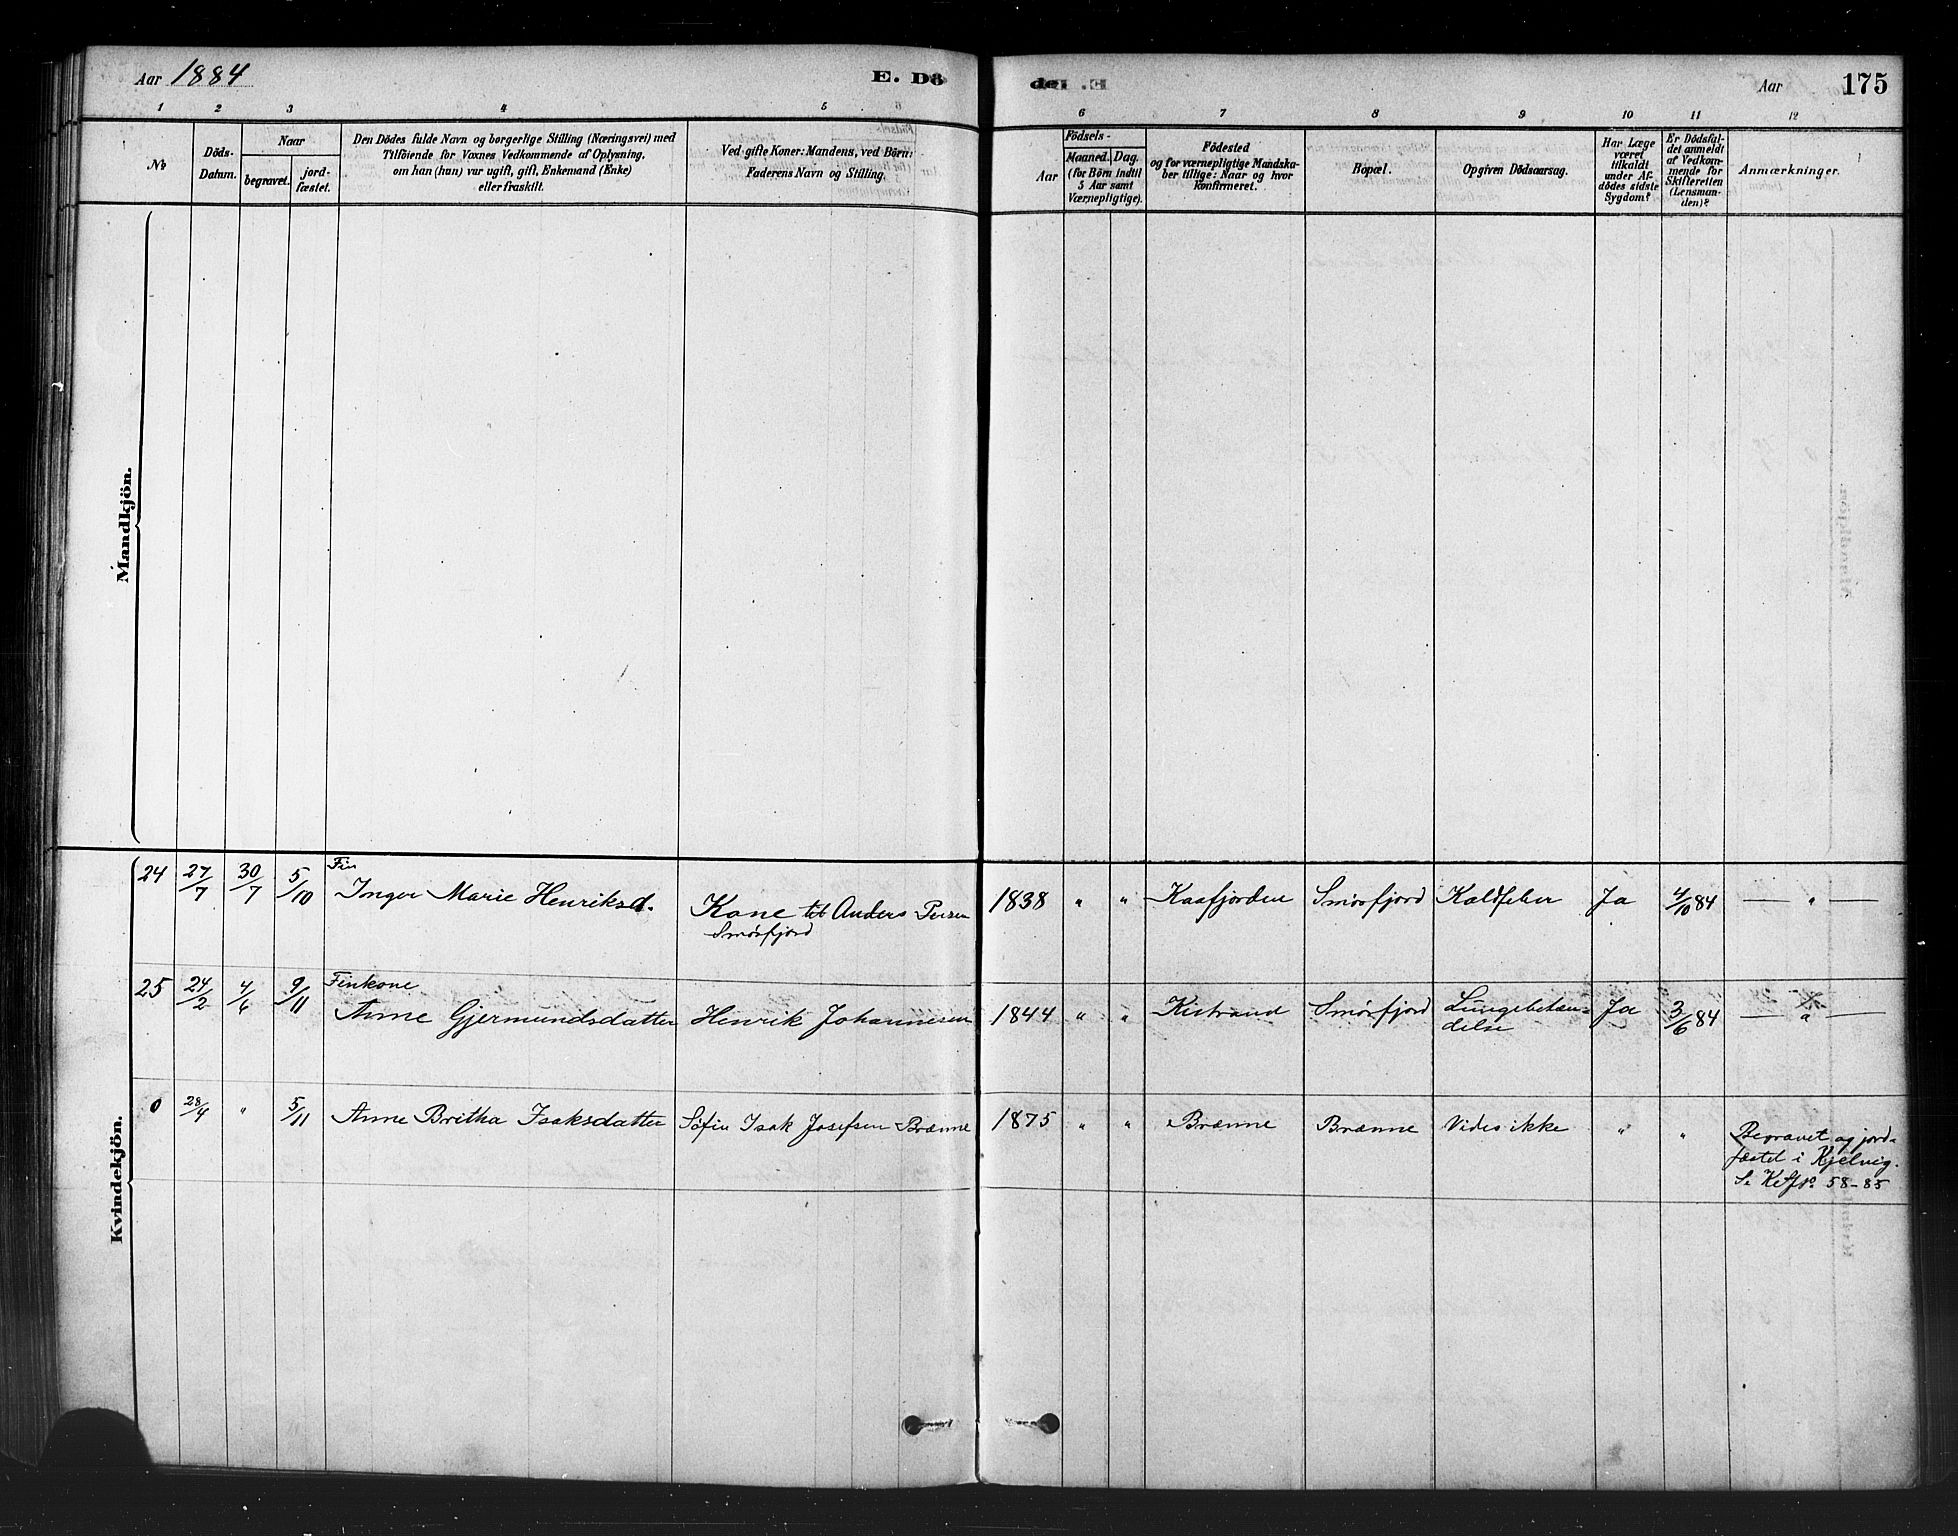 Aar 1884
E. Dö
del. E
Aar
175
1 2 3 4 5 6 7 8 9 10 11 12
No
Döds-
Datum.
Naar
begravet.
jord-
fæstet.
Den Dödes fulde Navn og borgerlige Stilling (Næringsvei) med
Tilföiende for Voxnes Vedkommende af Oplysning,
om han (hun) var ugift, gift, Enkemand (Enke)
eller fraskilt.
Ved gifte Koner: Mandens, ved Börn:
Faderens Navn og Stilling.
Födsels-
Aar
Maaned. Dag.
(for Börn indtil
5 Aar samt
Værnepligtige).
Födested
og for værnepligtige Mandska-
ber tillige: Naar og hvor
Konfirmeret.
Bopæl.
Opgiven Dödsaarsag.
Har Læge
været
tilkaldt
under Af-
dödes sidste
Sygdom?
Er Dödsfal-
det anmeldt
af Vedkom-
mende for
Skifteretten
(Lensman-
den)?
Anmærkninger.
Mandkjön.
Kvindekjön.
24 27/7 30/7 5/10 Fin
Inger Marie Henriksd. Kone til Anders Persen
Smørfjord
1838 " " Kaafjorden Smørfjord Koldfeber Ja 4/10 84 — " —
25 24/2 4/6 9/11 Finkone
Anne Gjermundsdatter Henrik Johannesen 1844 " " Kistrand Smørfjord Lungebetæn-
delse Ja 3/6 84 — " —
0 28/4 " 5/11 Anne Britha Isaksdatter Søfin Isak Josefsen Brænne 1875 " " Brænne Brænne Vides ikke " " Begravet og jord-
fæstet i Kjelvig.
58-85